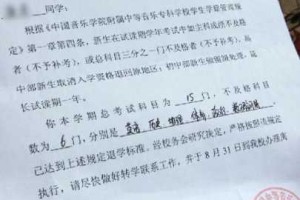 同学：
根据《中国音乐学院附属中等音乐专科学校学生学籍管理规
定》第一章第四条，新生在试读期学年考试中如主科成绩不及格
者（不予补考），或总科目三分之一门不及格者（不予补考），高
中部新生取消入学资格退回原地区；初中部新生做留级处理，延
长试读期一年。
你本学期总考试科目为 15 门，不及格科目
数为 6 门，分别是 历史 物理
已达到上述规定退学标准。经校务会研究决定，严格按照该规定
执行，请尽快做好转学联系工作，并于8月31日到我校办理离